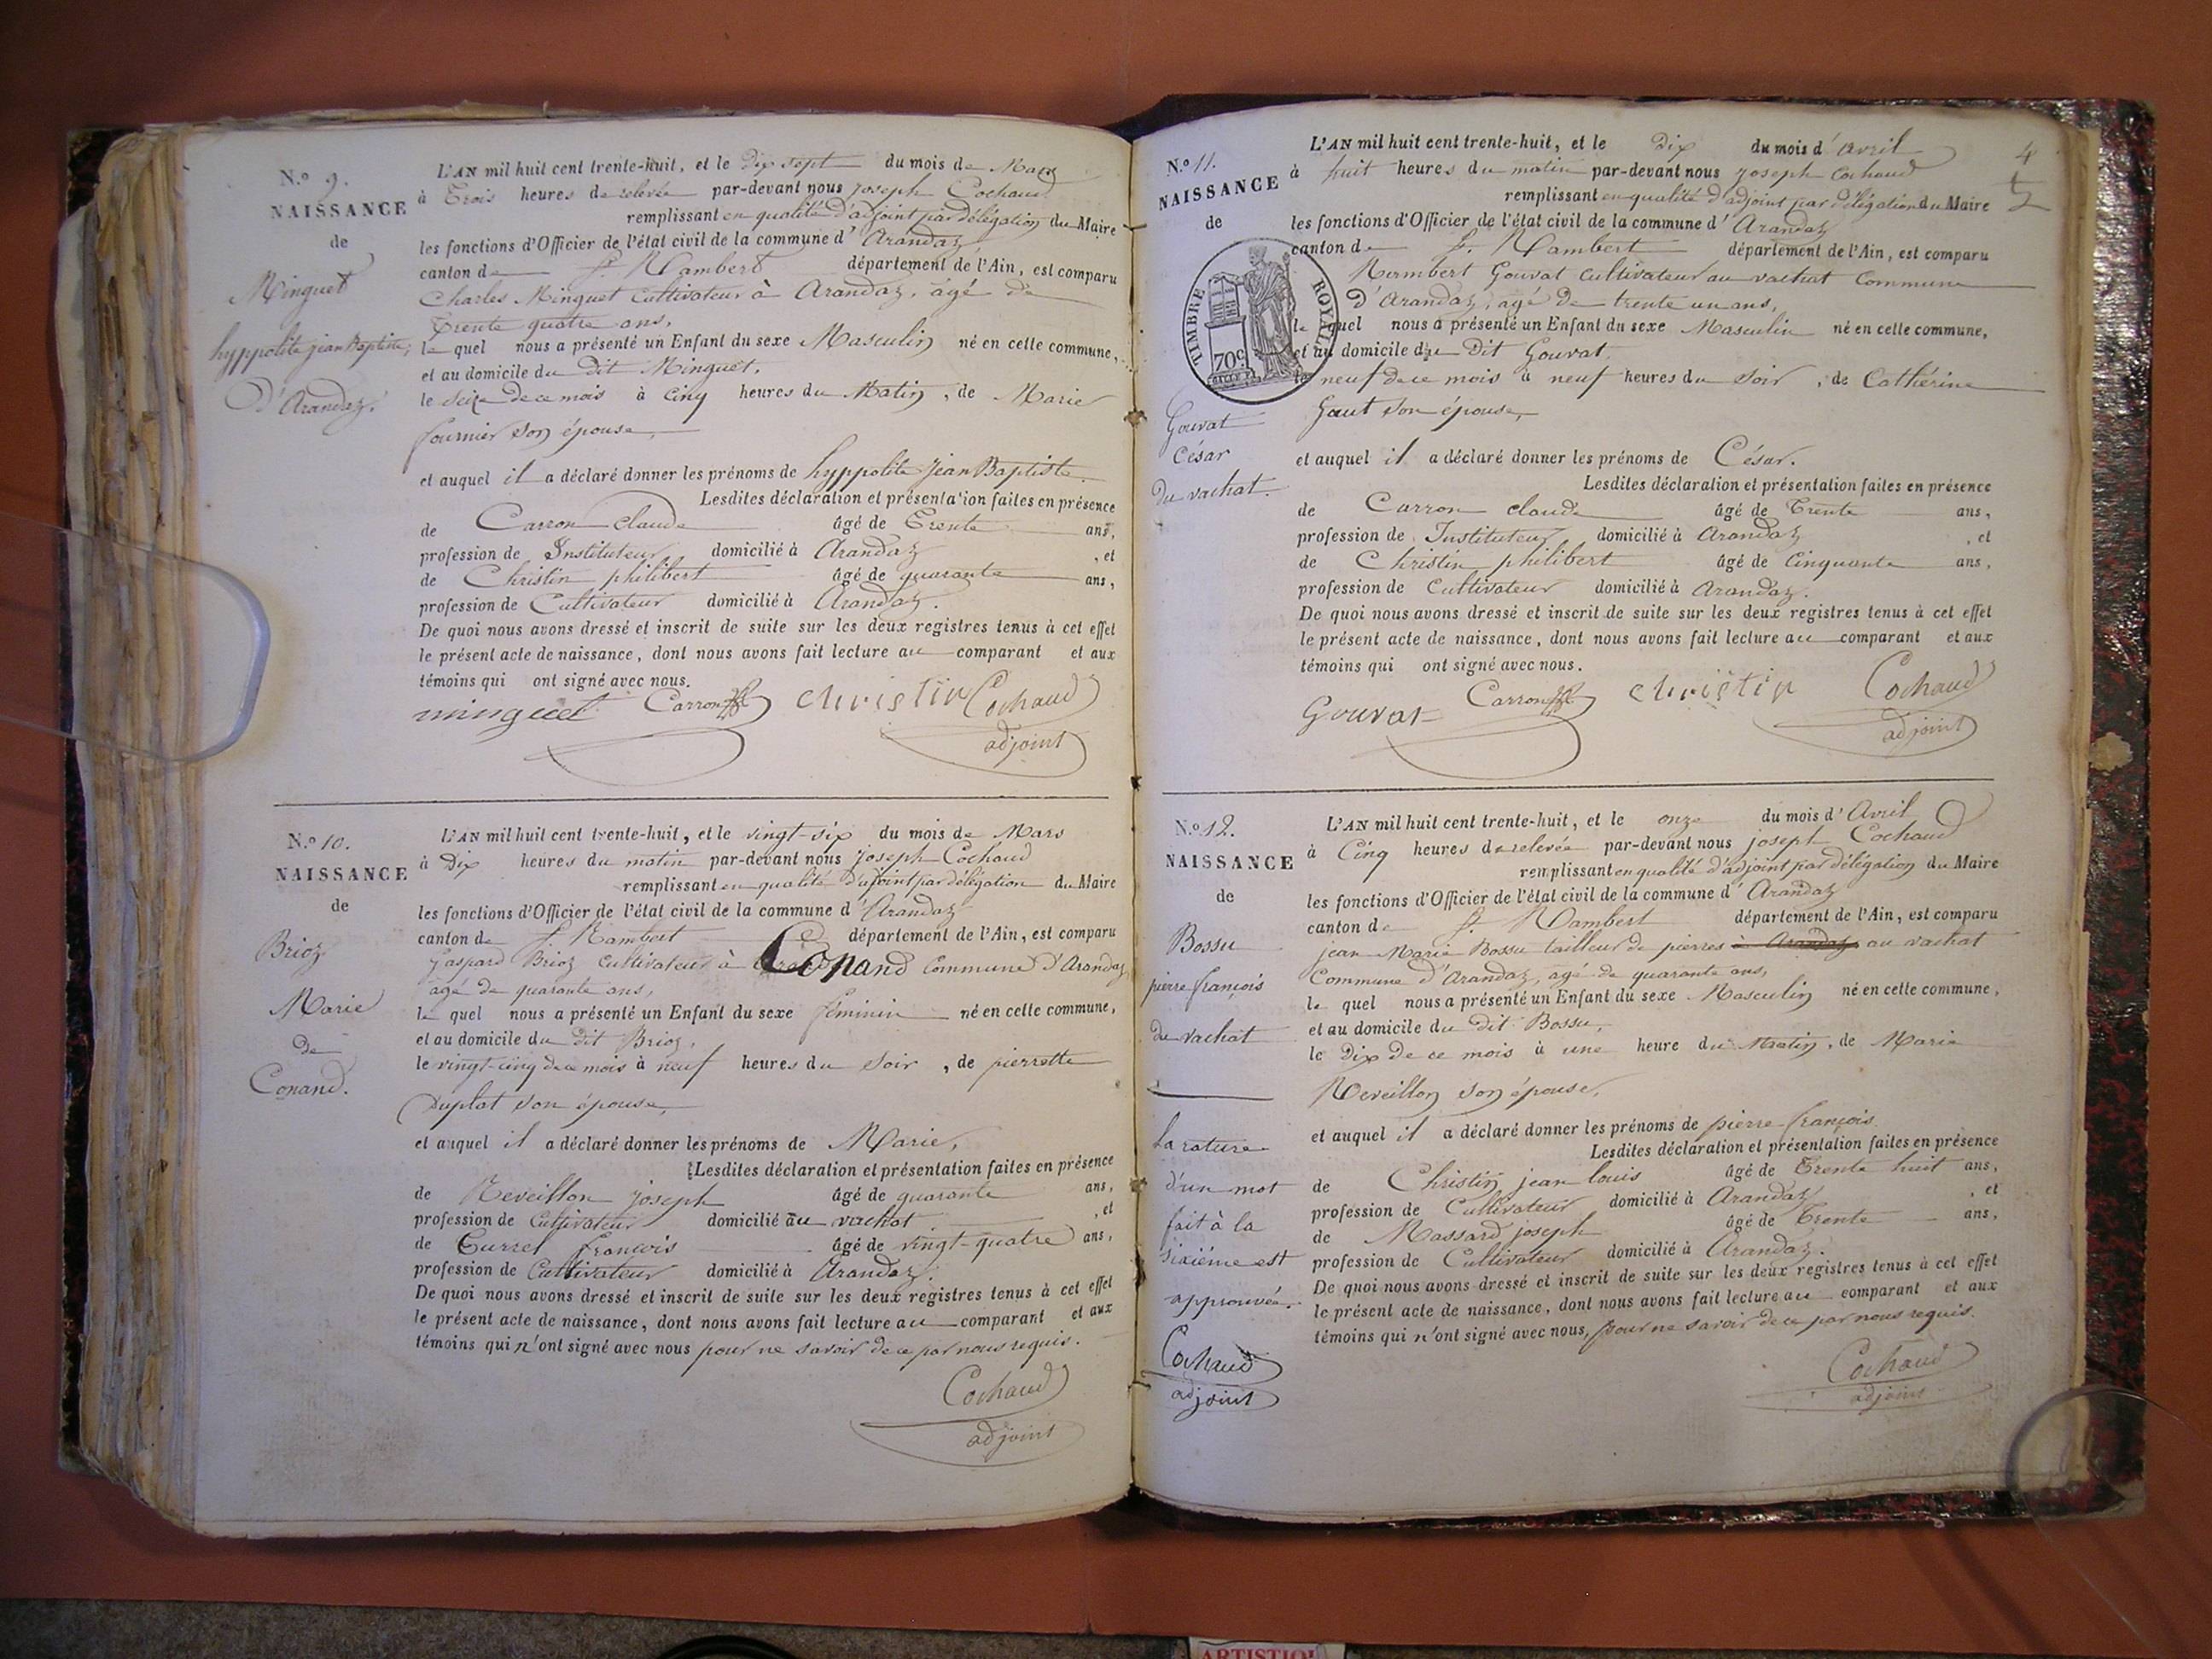 N.º 9.
NAISSANCE
de
Minguet
hyppolite jean Baptiste,
d'Arandaz.
L'AN mil huit cent trente-huit, et le dix sept du mois de Mars
à Trois heures de relevée par-devant nous joseph Cochaud
remplissant en qualité d'adjoint par délégation du Maire
les fonctions d'Officier de l'état civil de la commune d'Arandaz
canton de St. Rambert département de l'Ain, est comparu
Charles Minguet Cultivateur à Arandaz, agé de
Trente quatre ans,
le quel nous a présenté un Enfant du sexe Masculin né en cette commune,
et au domicile du dit Minguet,
le seize de ce mois à Cinq heures du Matin, de Marie
fournier son épouse,
et auquel il a déclaré donner les prénoms de hyppolite jean Baptiste.
Lesdites déclaration et présentation faites en présence
de Carron claude âgé de Trente ans,
profession de Instituteur domicilié à Arandaz, et
de Christin philibert âgé de quarante ans,
profession de Cultivateur domicilié à Arandaz.
De quoi nous avons dressé et inscrit de suite sur les deux registres tenus à cet effet
le présent acte de naissance, dont nous avons fait lecture au comparant et aux
témoins qui ont signé avec nous.
minguet Carron christin Cochaud
adjoint
N.º 10.
NAISSANCE
de
Brioz
Marie
De
Conand.
L'AN mil huit cent trente-huit, et le vingt-six du mois de Mars
à Dix heures du matin par-devant nous joseph Cochaud
remplissant en qualité d'adjoint par délégation du Maire
les fonctions d'Officier de l'état civil de la commune d'Arandaz
canton de St. Rambert département de l'Ain, est comparu
Gaspard Brioz Cultivateur à Conand Commune d'Arandaz
agé de quarante ans,
le quel nous a présenté un Enfant du sexe féminin né en cette commune,
et au domicile du dit Brioz,
le vingt-cinq de ce mois à neuf heures du soir, de pierrette
Duplat son épouse,
et auquel il a déclaré donner les prénoms de Marie,
Lesdites déclaration et présentation faites en présence
de Reveillon joseph âgé de quarante ans,
profession de Cultivateur domicilié au vachat, et
de Curret françois âgé de vingt-quatre ans,
profession de Cultivateur domicilié à Arandaz.
De quoi nous avons dressé et inscrit de suite sur les deux registres tenus à cet effet
le présent acte de naissance, dont nous avons fait lecture au comparant et aux
témoins qui n'ont signé avec nous pour ne savoir de ce par nous requis.
Cochaud
adjoint
4
N.º 11.
NAISSANCE
de
TIMBRE ROYAL
70c
Gouvat
César
du vachat.
L'AN mil huit cent trente-huit, et le Dix du mois d'avril
à huit heures du matin par-devant nous joseph Cochaud
remplissant en qualité d'adjoint par délégation du Maire
les fonctions d'Officier de l'état civil de la commune d'Arandaz
canton de St. Rambert département de l'Ain, est comparu
Rambert Gouvat Cultivateur au vachat Commune
D'Arandaz, agé de trente un ans,
le quel nous a présenté un Enfant du sexe Masculin né en cette commune,
et au domicile du Dit Gouvat
le neuf de ce mois à neuf heures du soir, de Cathérine
Gaut son épouse,
et auquel il a déclaré donner les prénoms de César.
Lesdites déclaration et présentation faites en présence
de Carron claude âgé de Trente ans,
profession de Instituteur domicilié à Arandaz, et
de Christin philibert âgé de Cinquante ans,
profession de Cultivateur domicilié à Arandaz.
De quoi nous avons dressé et inscrit de suite sur les deux registres tenus à cet effet
le présent acte de naissance, dont nous avons fait lecture au comparant et aux
témoins qui ont signé avec nous.
Gouvat Carron christin Cochaud
adjoint
N.º 12.
NAISSANCE
de
Bossu
pierre françois
du vachat
La rature
d'un mot
fait à la
sixiéme est
approuvée.
Cochaud
adjoint
L'AN mil huit cent trente-huit, et le onze du mois d'Avril
à Cinq heures de relevée par-devant nous joseph Cochaud
remplissant en qualité d'adjoint par délégation du Maire
les fonctions d'Officier de l'état civil de la commune d'Arandaz
canton de St. Rambert département de l'Ain, est comparu
jean Marie Bossu tailleur de pierres à Arandaz au vachat
Commune d'Arandaz, agé de quarante ans,
le quel nous a présenté un Enfant du sexe Masculin né en cette commune,
et au domicile du dit Bossu,
le Dix de ce mois à une heure du Matin, de Marie
Reveillon son épouse,
et auquel il a déclaré donner les prénoms de pierre-françois
Lesdites déclaration et présentation faites en présence
de Christin jean louis âgé de Trente huit ans,
profession de Cultivateur domicilié à Arandaz, et
de Massard joseph âgé de Trente ans,
profession de Cultivateur domicilié à Arandaz.
De quoi nous avons dressé et inscrit de suite sur les deux registres tenus à cet effet
le présent acte de naissance, dont nous avons fait lecture au comparant et aux
témoins qui n'ont signé avec nous, pour ne savoir de ce par nous requis.
Cochaud
adjoint